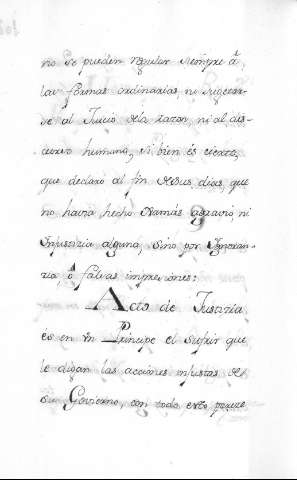 no se pueden regular siempre á
las formas ordinarias, ni sugetar-
se al Juicio dela razon, ni al dis-
curso humano, si bien és cierto,
que declaró al fin de sus dias, que
no havia hecho Jamás agravio ni
Injusticia alguna, sino por Ignoran-
cia ó falsas impresiones:
Acto de Justicia
es en un Principe el sufrir que
le digan las acciones injustas de
su Govierno, con todo esto parece